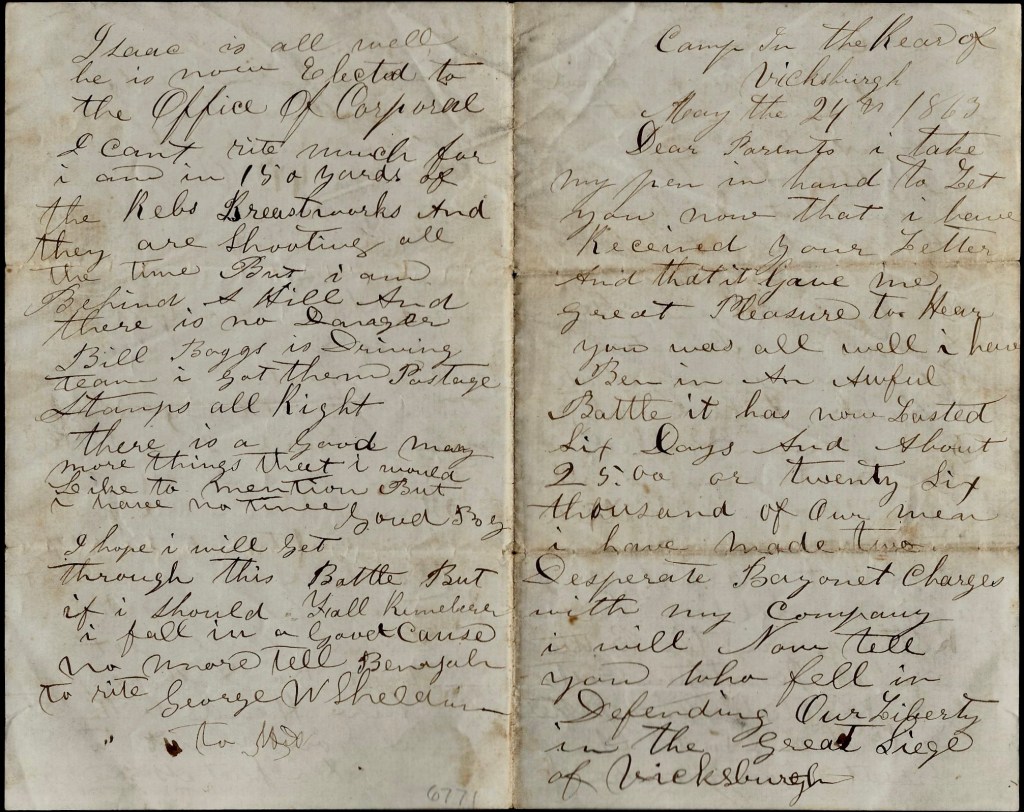 Camp In the Rear of
Vicksburgh
May the 24th 1863
Dear Parents i take
my pen in hand to Let
you now that i have
Received your Letter
And that it Gave me
great Pleasure to Hear
you was all well i have
Ben in An Awful
Battle it has now Lasted
Six Days And About
25.00 or twenty Six
thousand of Our men
i have made two
Desperate Bayonet Charges
with my Company
i will Now tell
you who fell in
Defending Our Liberty
in the Great Siege
of Vicksburgh
Isaac is all well
he is now Elected to
the Office Of Corporal
I cant rite much for
i am in 150 yards of
the Rebs Breastworks And
they are Shooting all
the time But i am
Behind A Hill And
there is no Danger
Bill Boggs is Driving
team i got them Postage
Stamps all Right
there is a good many
more things that i would
Like to mention But
i have no time Good By
I hope i will get
through this Battle But
if i should Fall Remeberer
i fall in a Good Cause
no more tell Benajah
to rite George W Sheldon
to
6771